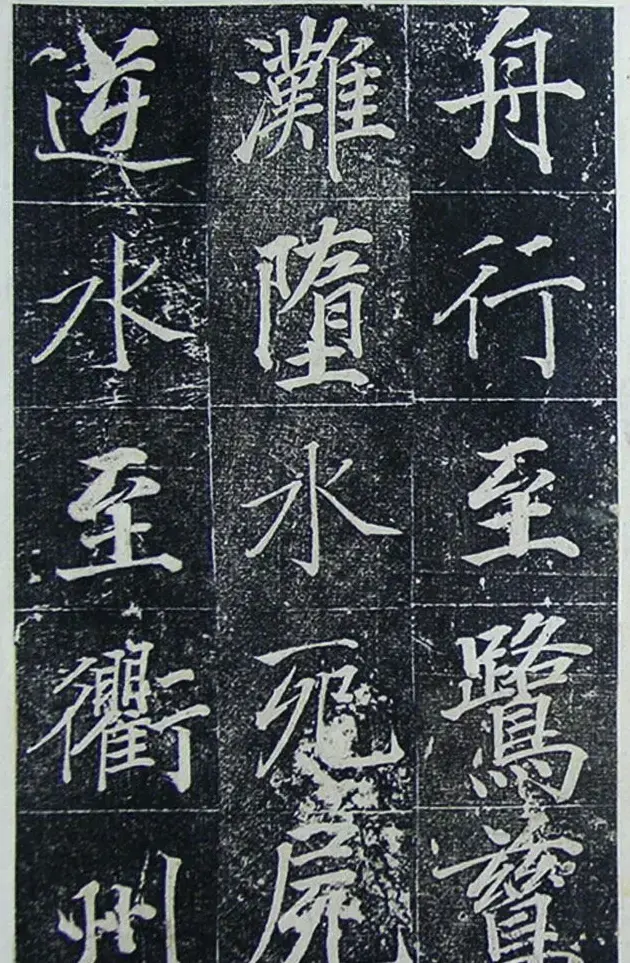 舟行至鷺
灘墮水死屍
逆水至衢州